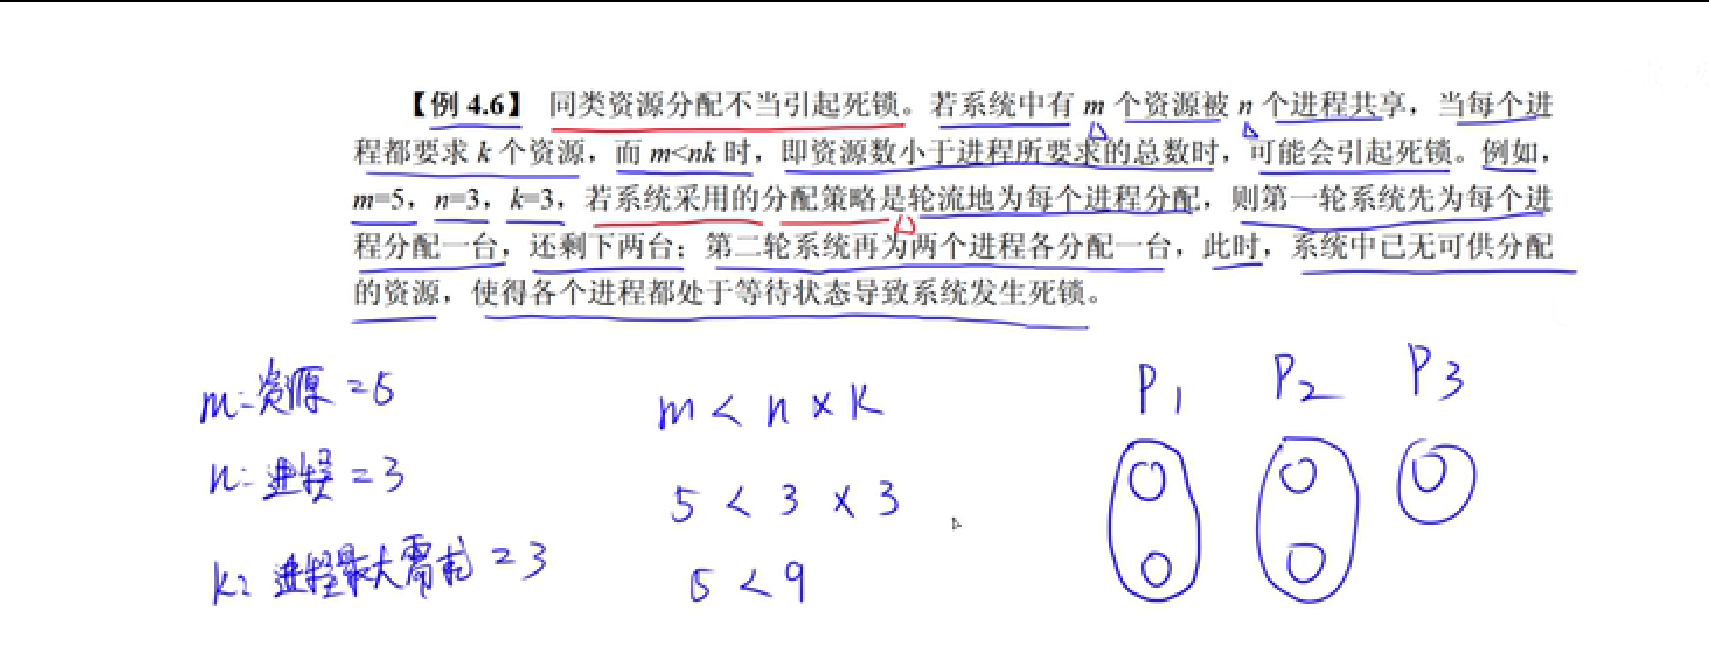 【例 4.6】 同类资源分配不当引起死锁。若系统中有 m 个资源被 n 个进程共享，当每个进
程都要求 k 个资源，而 m<nk 时，即资源数小于进程所要求的总数时，可能会引起死锁。例如，
m=5，n=3，k=3，若系统采用的分配策略是轮流地为每个进程分配，则第一轮系统先为每个进
程分配一台，还剩下两台；第二轮系统再为两个进程各分配一台，此时，系统中已无可供分配
的资源，使得各个进程都处于等待状态导致系统发生死锁。
m: 资源 = 5
n: 进程 = 3
k: 进程最大需求 = 3
m < n × k
5 < 3 × 3
5 < 9
P1 P2 P3